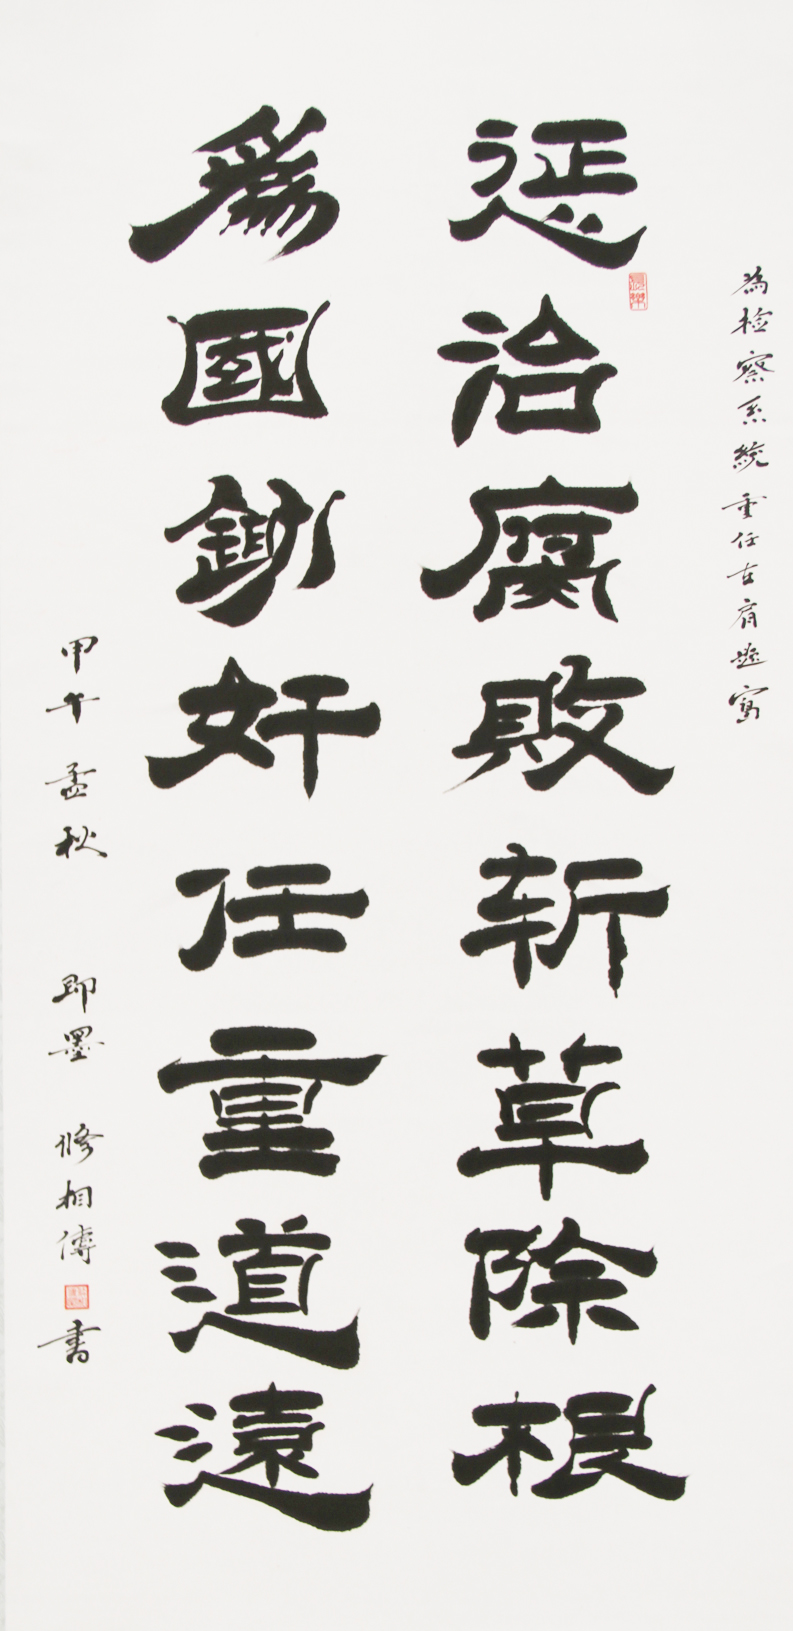 為检察系統重任在肩题寫
惩治腐敗斩草除根
為國鋤奸任重道遠
甲午孟秋 即墨 修相傳書